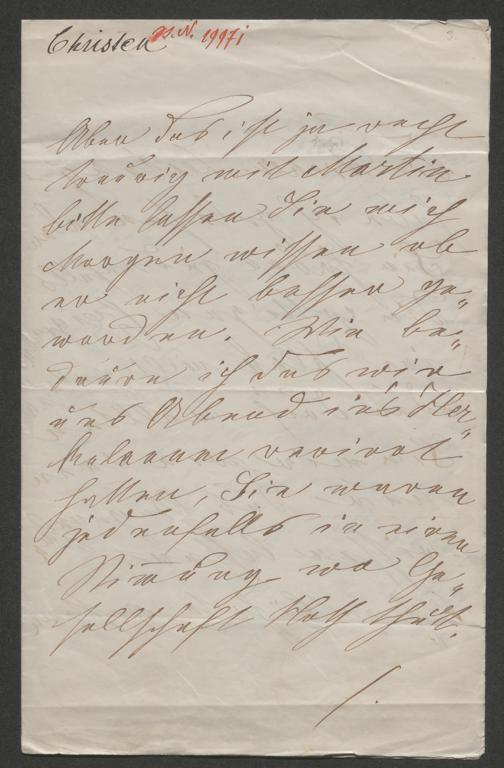 Christen H.N. 19971
3.
Aber das ist ja recht
traurig mit Martin
bitte lassen Sie mich
Morgen wissen ob
er nicht besser ge„
worden. Wie be„
daure ich das wir
uns Abend in's Her„
kulanum verirrt
hatten, Sie waren
jedenfalls in einer
Stim̄ung wo Ge„
sellschaft Noth thut.
/.